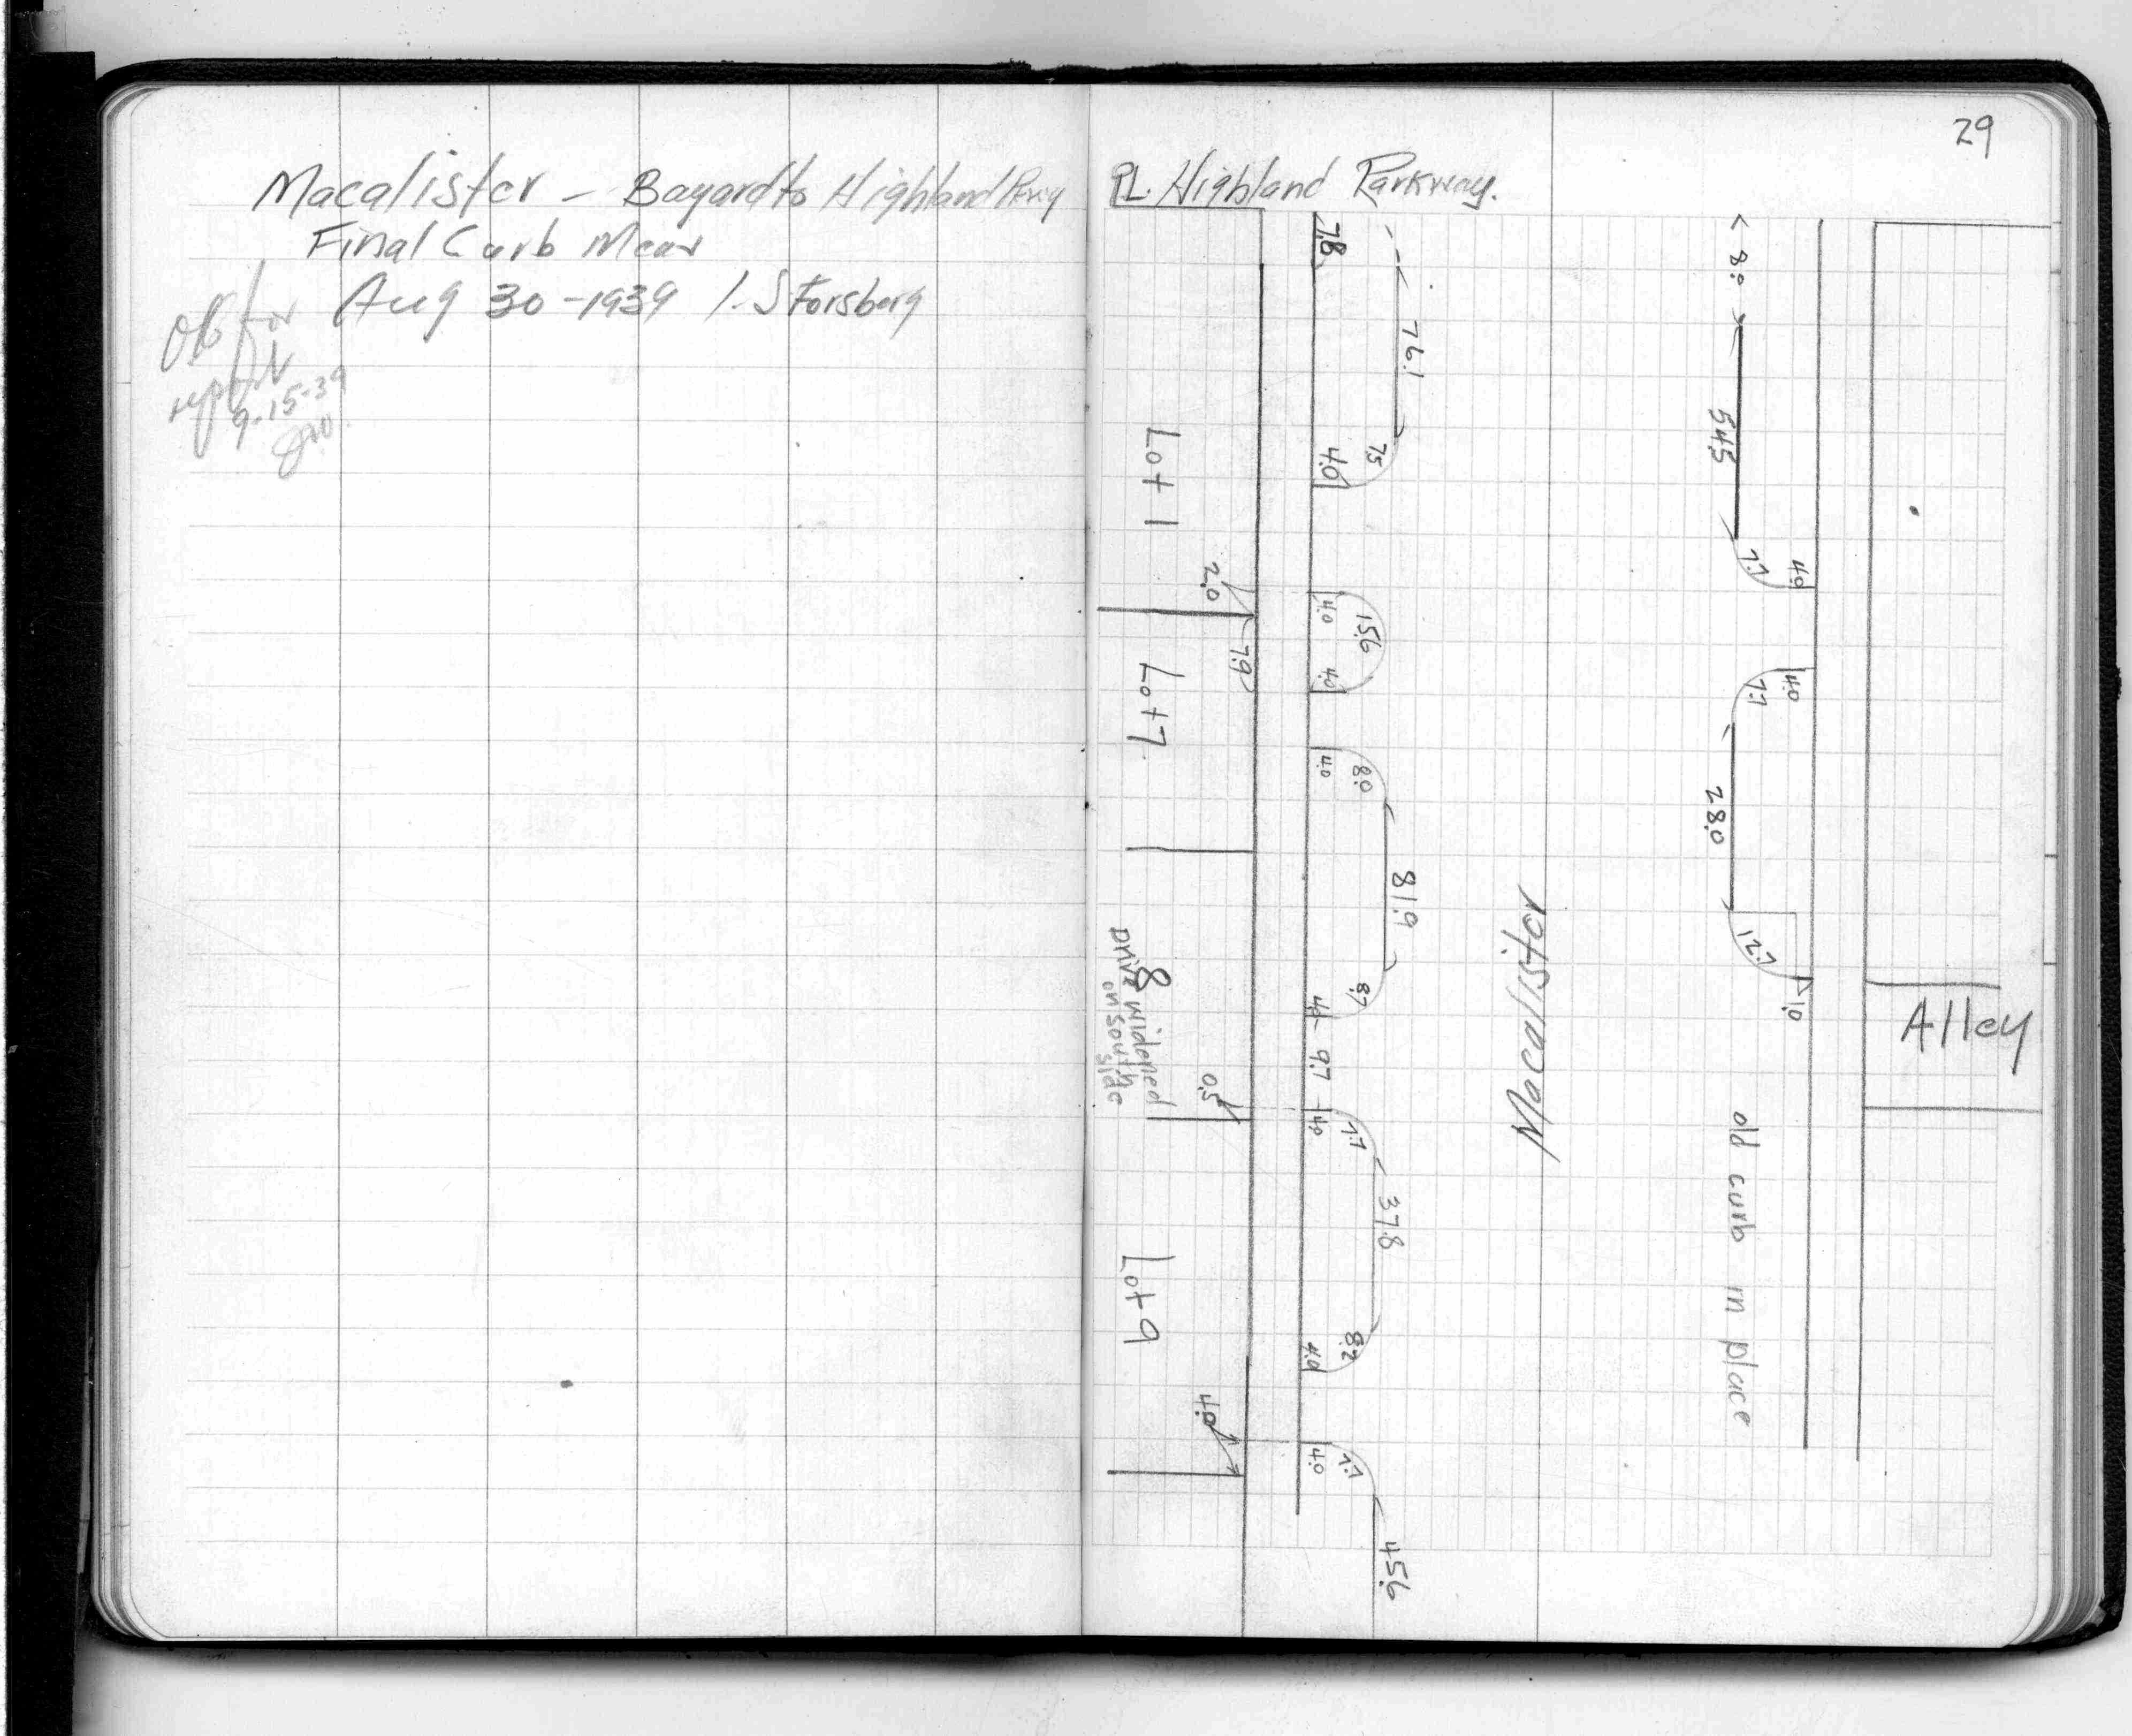 29
Macalister - Bayard to Highland Pkwy
Final Curb Meas
Aug 30-1939 I. S Forsberg
OK for
report
9-15-39
PL. Highland Parkway.
7.8
76.1
7.5
4.0
Lot 1
2.0
7.9
4.0
15.6
4.0
Lot 7
4.0
8.0
81.9
8.7
4.4
8
Drive widened
on south
side
9.7
0.5
4.0
7.7
37.8
8.2
4.0
Lot 9
4.0
4.0
7.7
45.6
Macallister
8.0
54.5
7.7
4.0
4.0
7.7
28.0
12.7
1.0
Alley
old curb in place